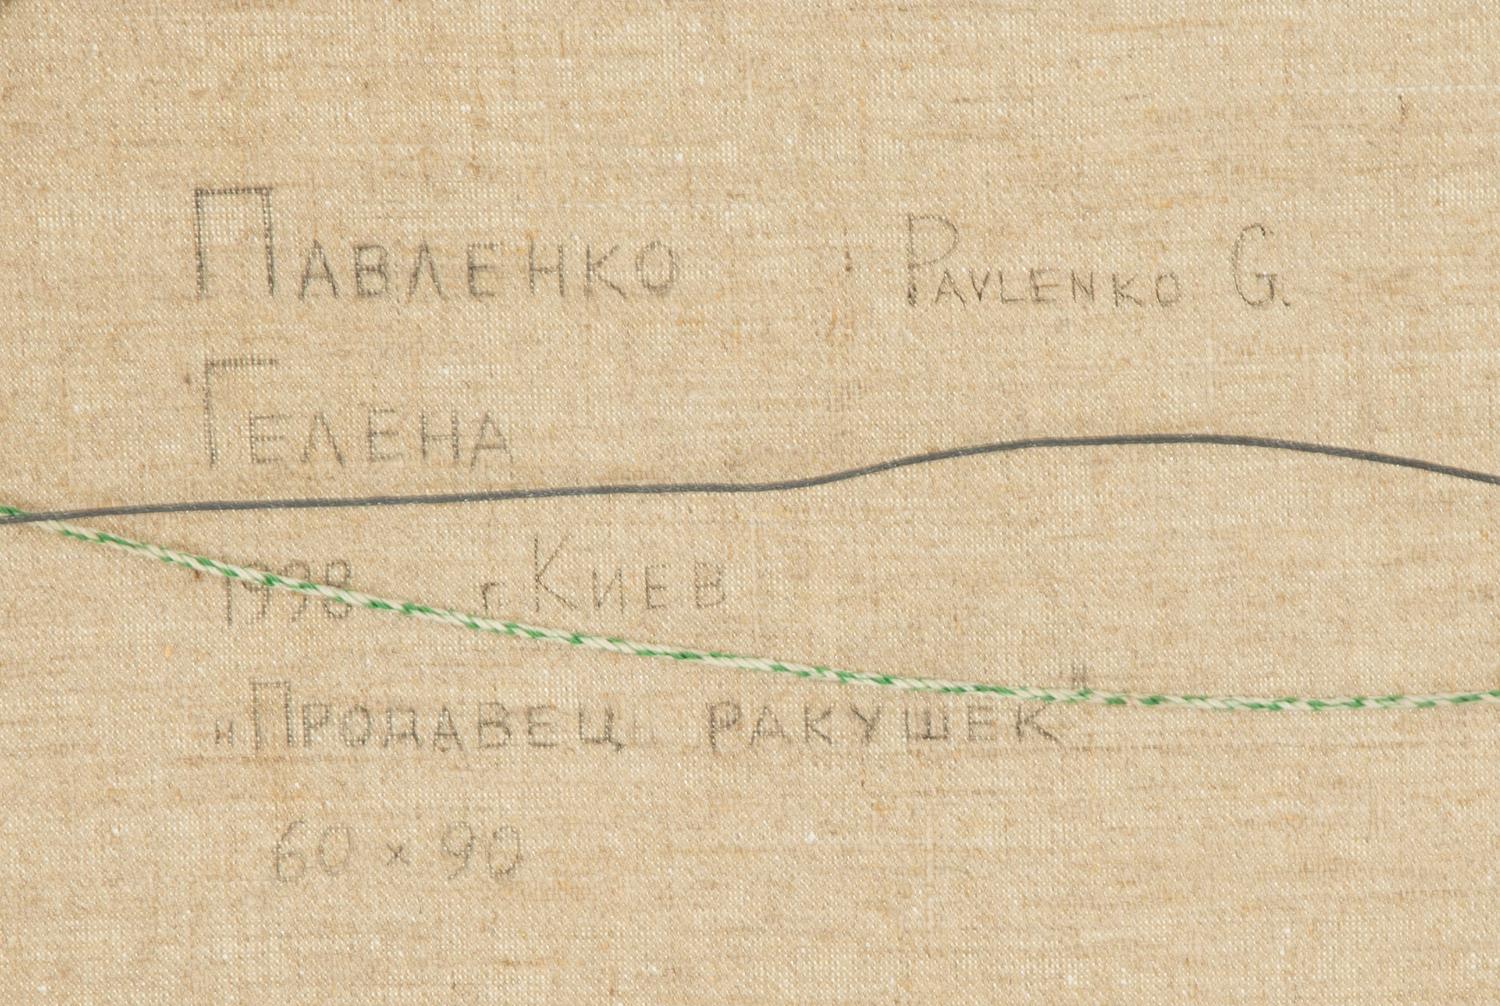 Павленко Pavlenko G.
Гелена
1998 г. Киев
"Продавец ракушек"
60 × 90